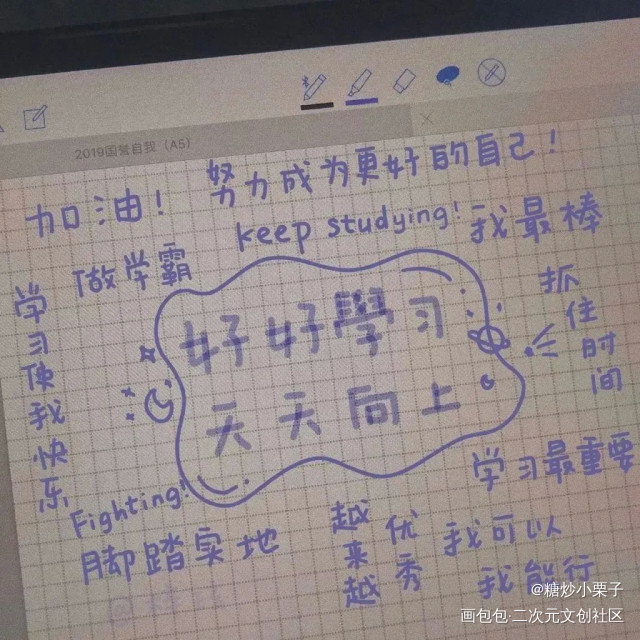 2019国誉自我（A5）
努力成为更好的自己！
加油！
keep studying!
我最棒
做学霸
抓住时间
学习使我快乐
好好學习
天天向上
学习最重要
Fighting!
脚踏实地
越来越优秀
我可以
我能行
@糖炒小栗子
画包包·二次元文创社区